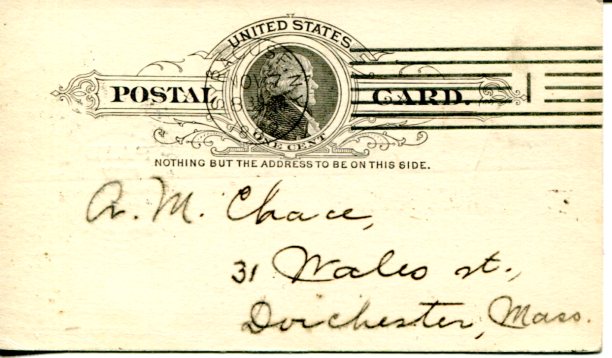 UNITED STATES
POSTAL CARD.
ONE CENT
NOTHING BUT THE ADDRESS TO BE ON THIS SIDE.
A. M. Chace,
31 Wales st.,
Dorchester, Mass.